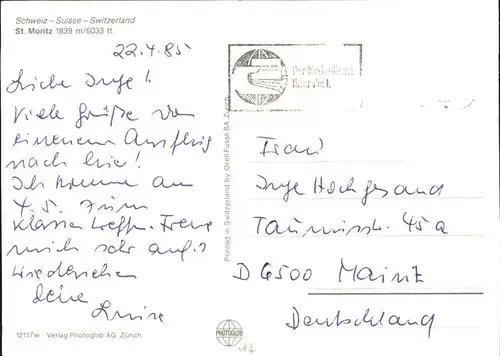 Schweiz – Suisse – Switzerland
St. Moritz 1839 m/6033 ft.
22.4.85
Liebe Inge!
Viele Grüße von
einem Ausflug
nach hier!
Ich komme am
4.5. zum
Klassentreff. Freue
mich sehr auf's
Wiedersehen
Deine
Luise
12117w Verlag Photoglob AG, Zürich
Printed in Switzerland by Orell Füssli SA, Zürich
PHOTOGLOB
Frau
Inge Hochgesand
Taunusstr. 45a
D 6500 Mainz
Deutschland